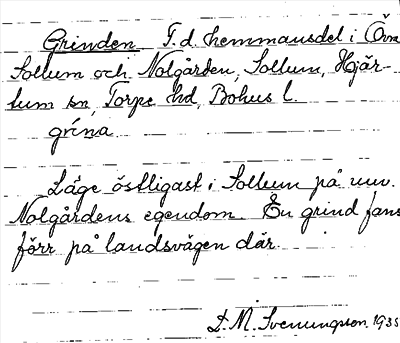 Grinden T.d. hemmansdel i Övre
Sollum och Nolgården, Sollum, Hjär-
tum sn, Torpe hd, Bohus l.
grina
Läge östligast i Sollum på nuv.
Nolgårdens egendom. En grind fans
förr på landsvägen där.
D. M. Svenungsson. 1935